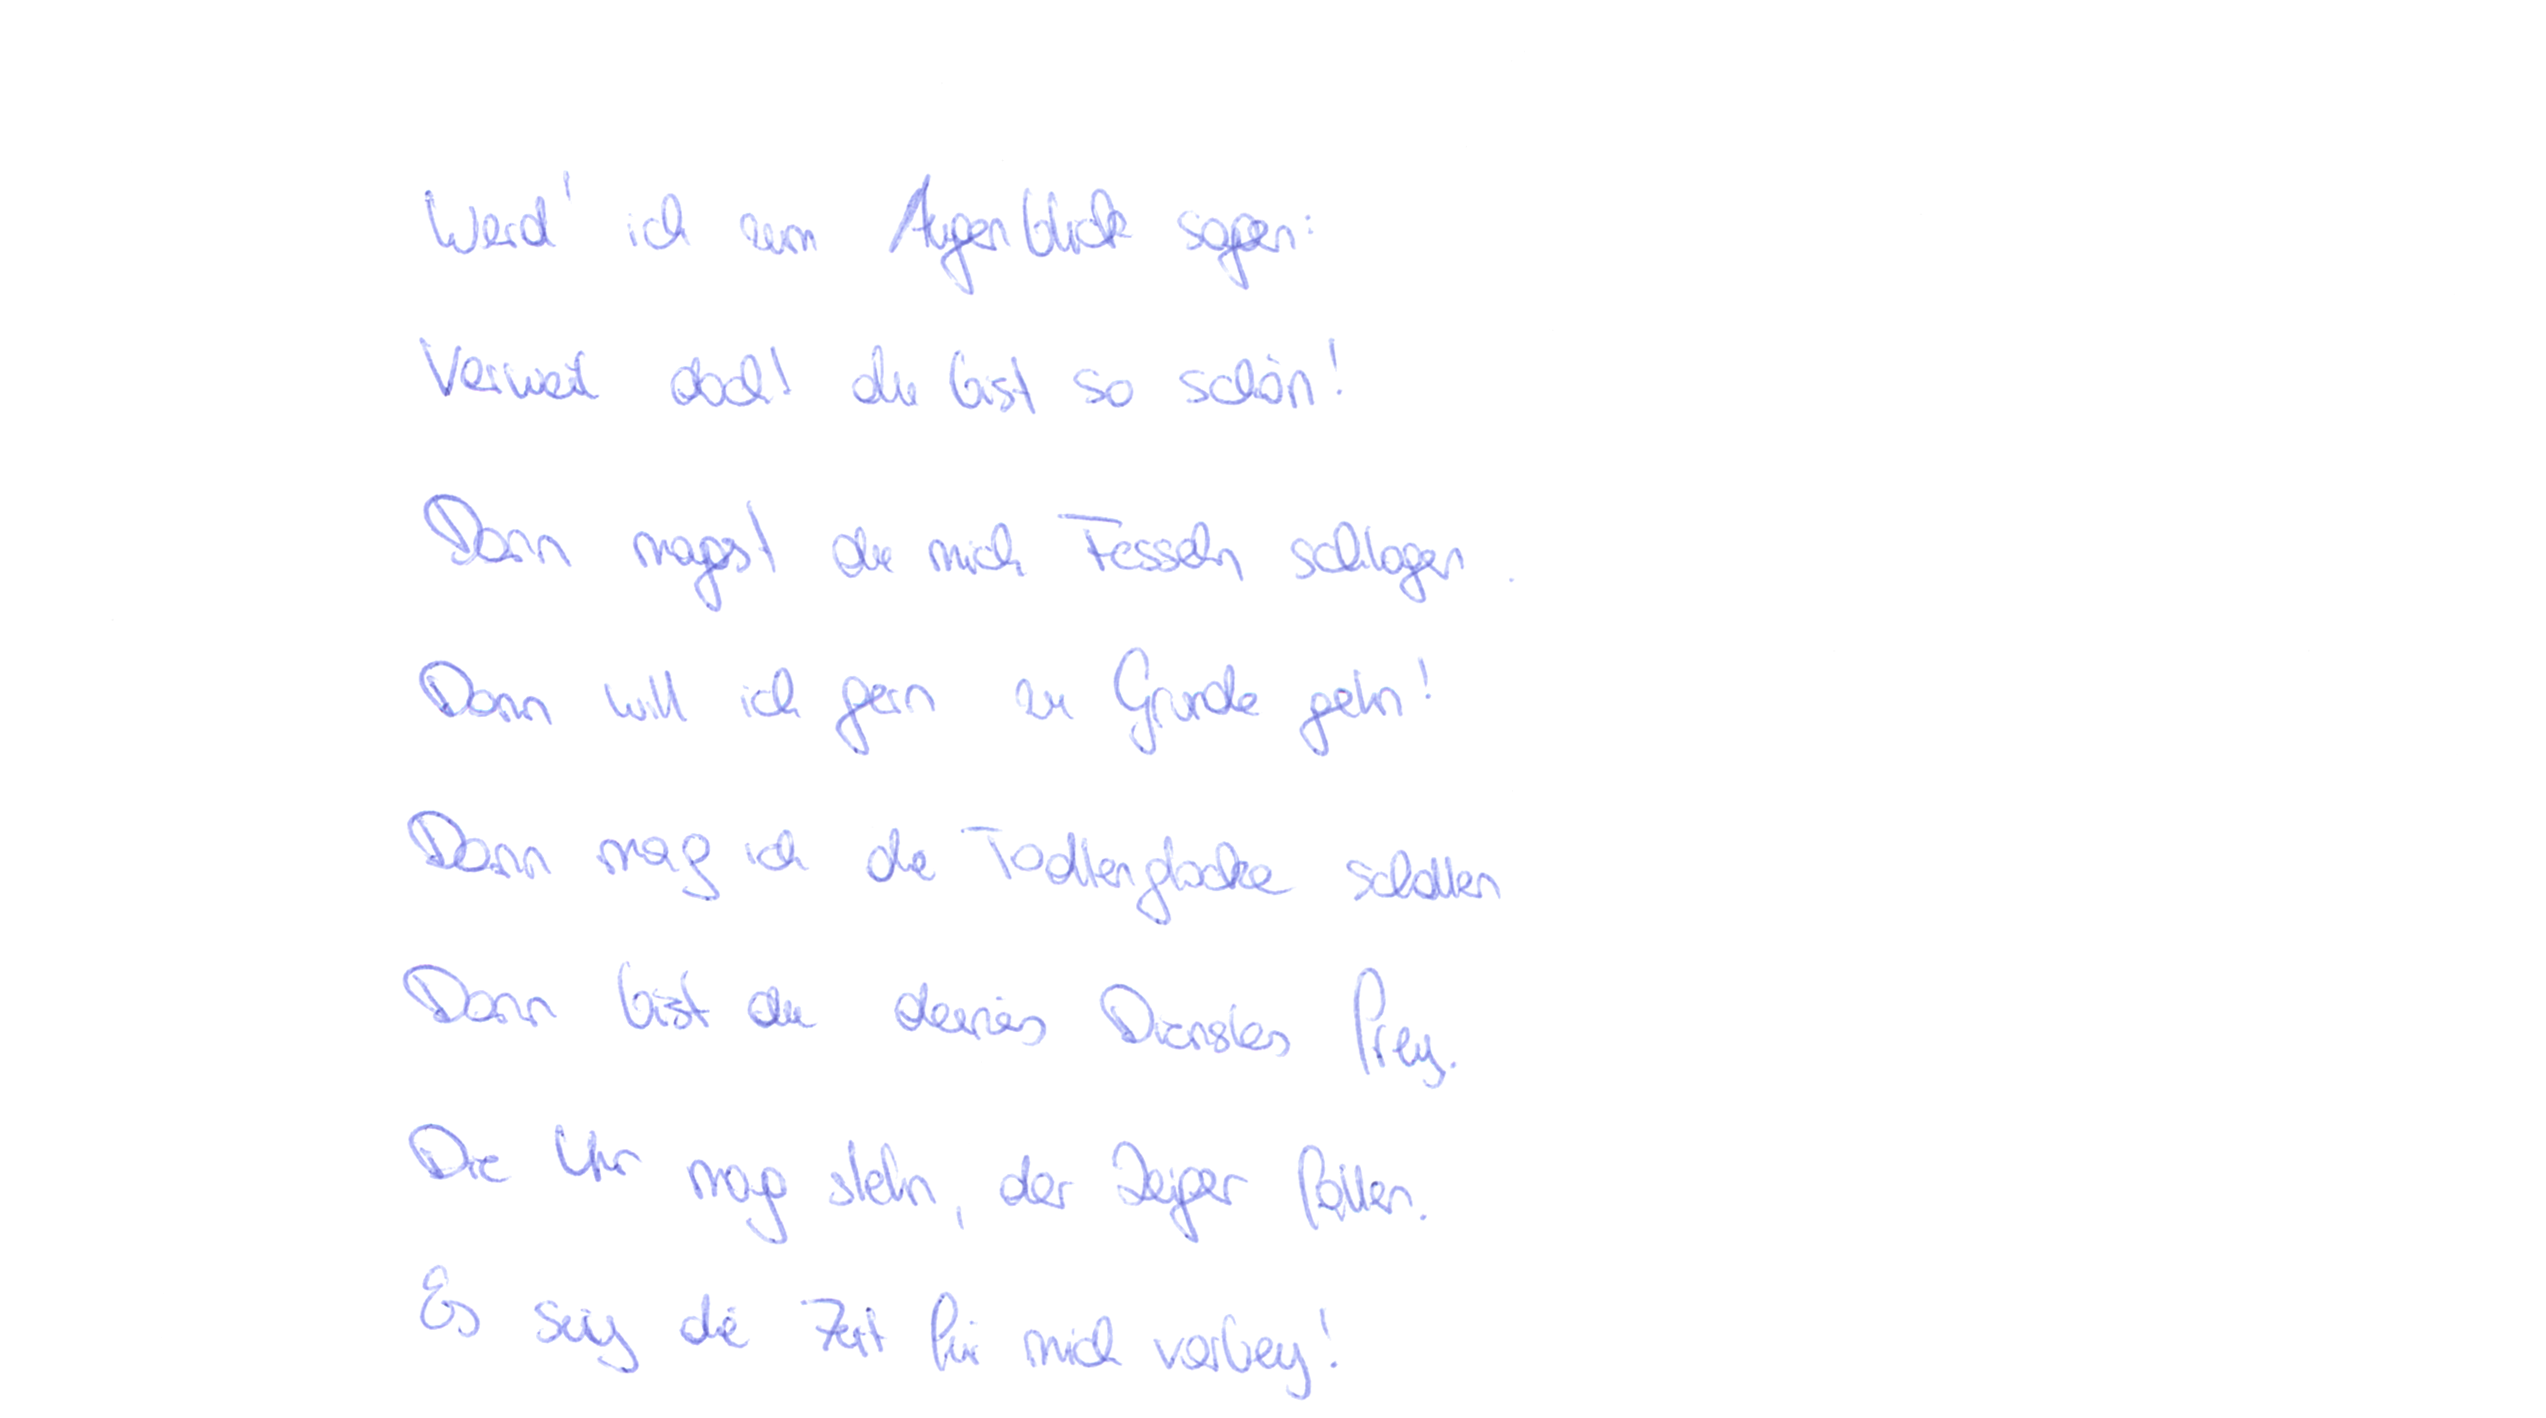 Werd' ich zum Augenblick sagen:
Verweil doch! du bist so schön!
Dann magst du mich Fesseln schlagen.
Dann will ich gern zu Grunde gehn!
Dann mag ich die Todtenglocke schallen
Dann bist du deines Dienstes frey.
Die Uhr mag stehn, der Zeiger fallen.
Es sey die Zeit für mich vorbey!